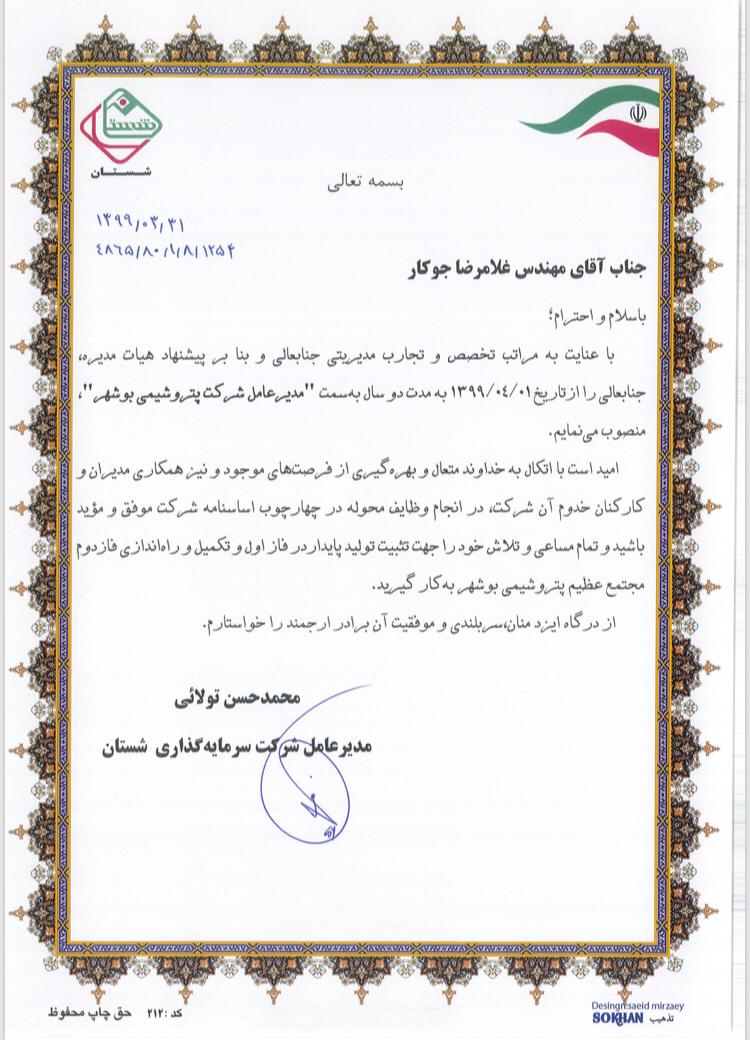 شستا
شستان
بسمه تعالی
۱۳۹۹/۰۳/۳۱
٤٨٦٥/٨٠/١/٨/١٢٥۴
جناب آقای مهندس غلامرضا جوکار
باسلام و احترام؛
با عنایت به مراتب تخصص و تجارب مدیریتی جنابعالی و بنا بر پیشنهاد هیات مدیره،
جنابعالی را از تاریخ ۱۳۹۹/۰٤/۰۱ به مدت دو سال به‌سمت "مدیرعامل شرکت پتروشیمی بوشهر"،
منصوب می‌نمایم.
امید است با اتکال به خداوند متعال و بهره‌گیری از فرصت‌های موجود و نیز همکاری مدیران و
کارکنان خدوم آن شرکت، در انجام وظایف محوله در چهارچوب اساسنامه شرکت موفق و مؤید
باشید و تمام مساعی و تلاش خود را جهت تثبیت تولید پایدار در فاز اول و تکمیل و راه‌اندازی فازدوم
مجتمع عظیم پتروشیمی بوشهر به‌کار گیرید.
از درگاه ایزد منان،سربلندی و موفقیت آن برادر ارجمند را خواستارم.
محمدحسن تولائی
مدیرعامل شرکت سرمایه‌گذاری شستان
Desingn:saeid mirzaey
تذهیب SOKHAN
کد :۲۱۲ حق چاپ محفوظ